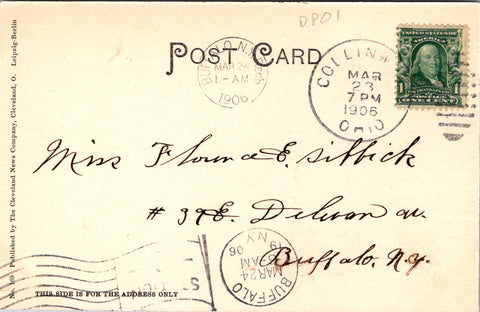 DPO1
POST CARD
BUFFALO, N.Y.
MAR 24
1 - AM
1906
COLLINW
MAR
23
7 PM
1906
OHIO
UNITED STATES OF AMERICA
1
ONE CENT
Miss Florence E. Sibbick
# 39 E. Delevan av.
Buffalo, N.Y.
BUFFALO
MAR 24
AM
19 06
N.Y.
THIS SIDE IS FOR THE ADDRESS ONLY
Published by The Cleveland News Company, Cleveland, O. Leipzig-Berlin